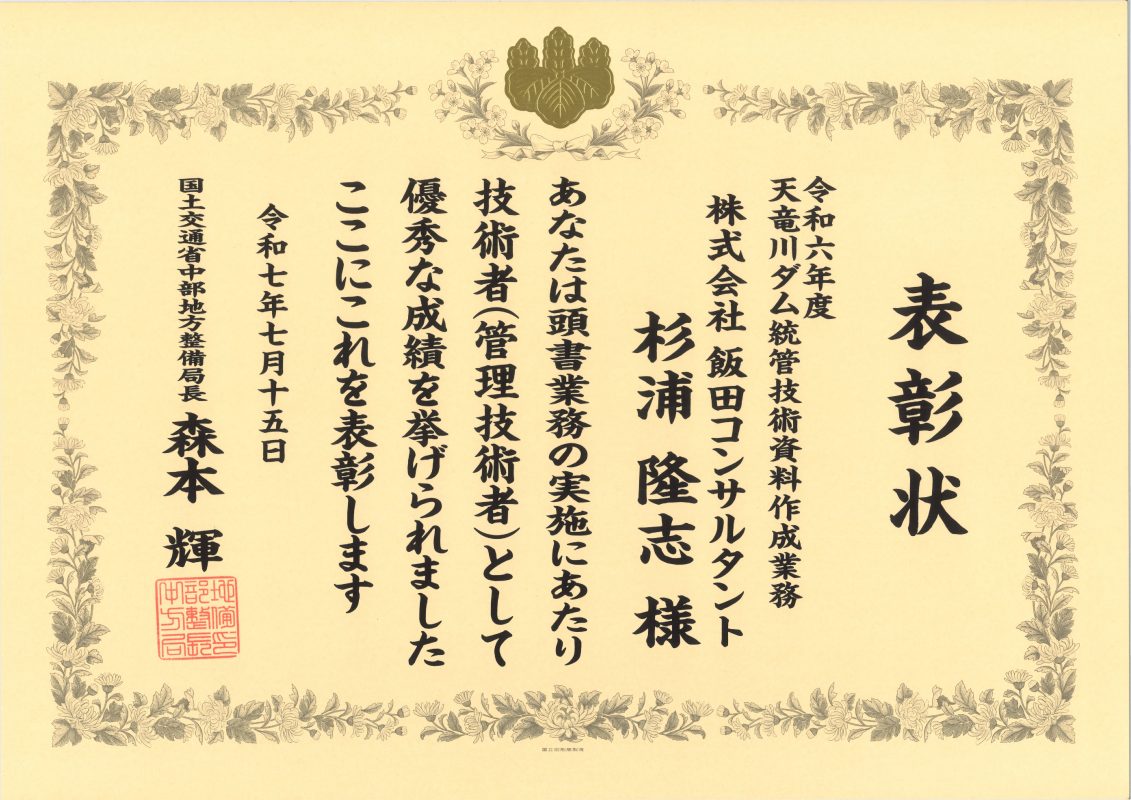 表彰状
令和六年度
天竜川ダム統管技術資料作成業務
株式会社 飯田コンサルタント
杉浦 隆志 様
あなたは頭書業務の実施にあたり
技術者(管理技術者)として
優秀な成績を挙げられました
ここにこれを表彰します
令和七年七月十五日
国土交通省中部地方整備局長 森本 輝
中部地方整備局長印